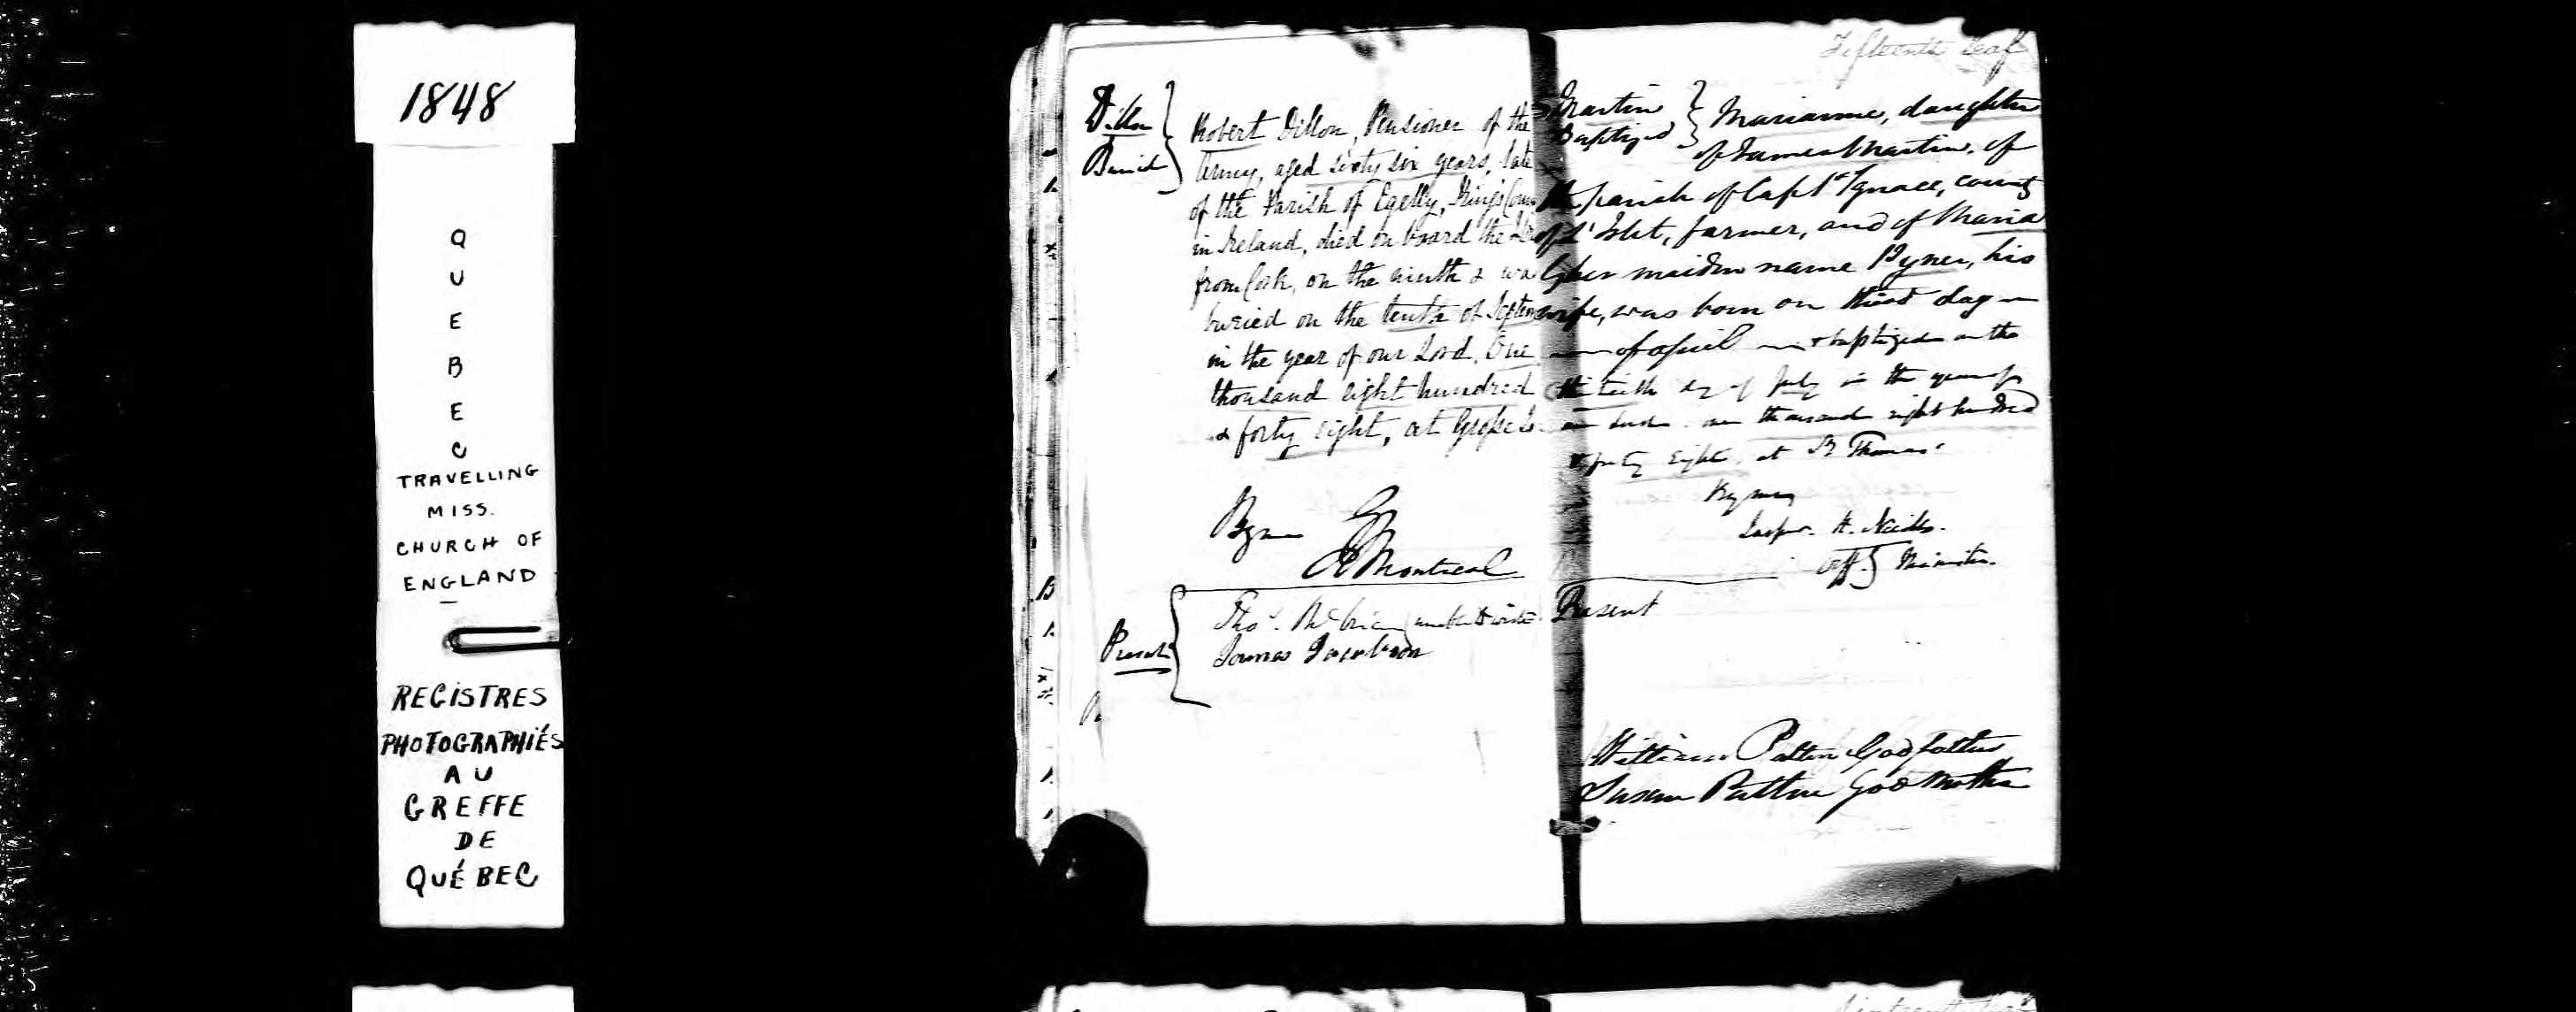 1848
Q
U
E
B
E
C
TRAVELLING
MISS.
CHURCH OF
ENGLAND
REGISTRES
PHOTOGRAPHIÉS
AU
GREFFE
DE
QUÉBEC
Dillon
Buried
Robert Dillon, Pensioner of the
Army, aged sixty six years, late
of the Parish of Egelly, King's Coun
in Ireland, died on board the
from Cork, on the ninth & wa
buried on the tenth of Septem
in the year of our Lord, One
thousand eight hundred
& forty eight, at Grosse Is
By me
G J Montreal
Present
Thos. unable to write
James
Fifteenth Leaf
Martin
Baptized
Marianne, daughter
of James Martin, of
the parish of Cap St Ignace, county
of L'Islet, farmer, and of Maria
by her maiden name Pyner, his
wife, was born on third day
of April & baptized on the
day of July in the year of
our Lord one thousand eight hundred
& forty eight, at St Thomas.
By me,
H.
Offg Minister.
Present
William Patton Godfather
Susan Patton God Mother